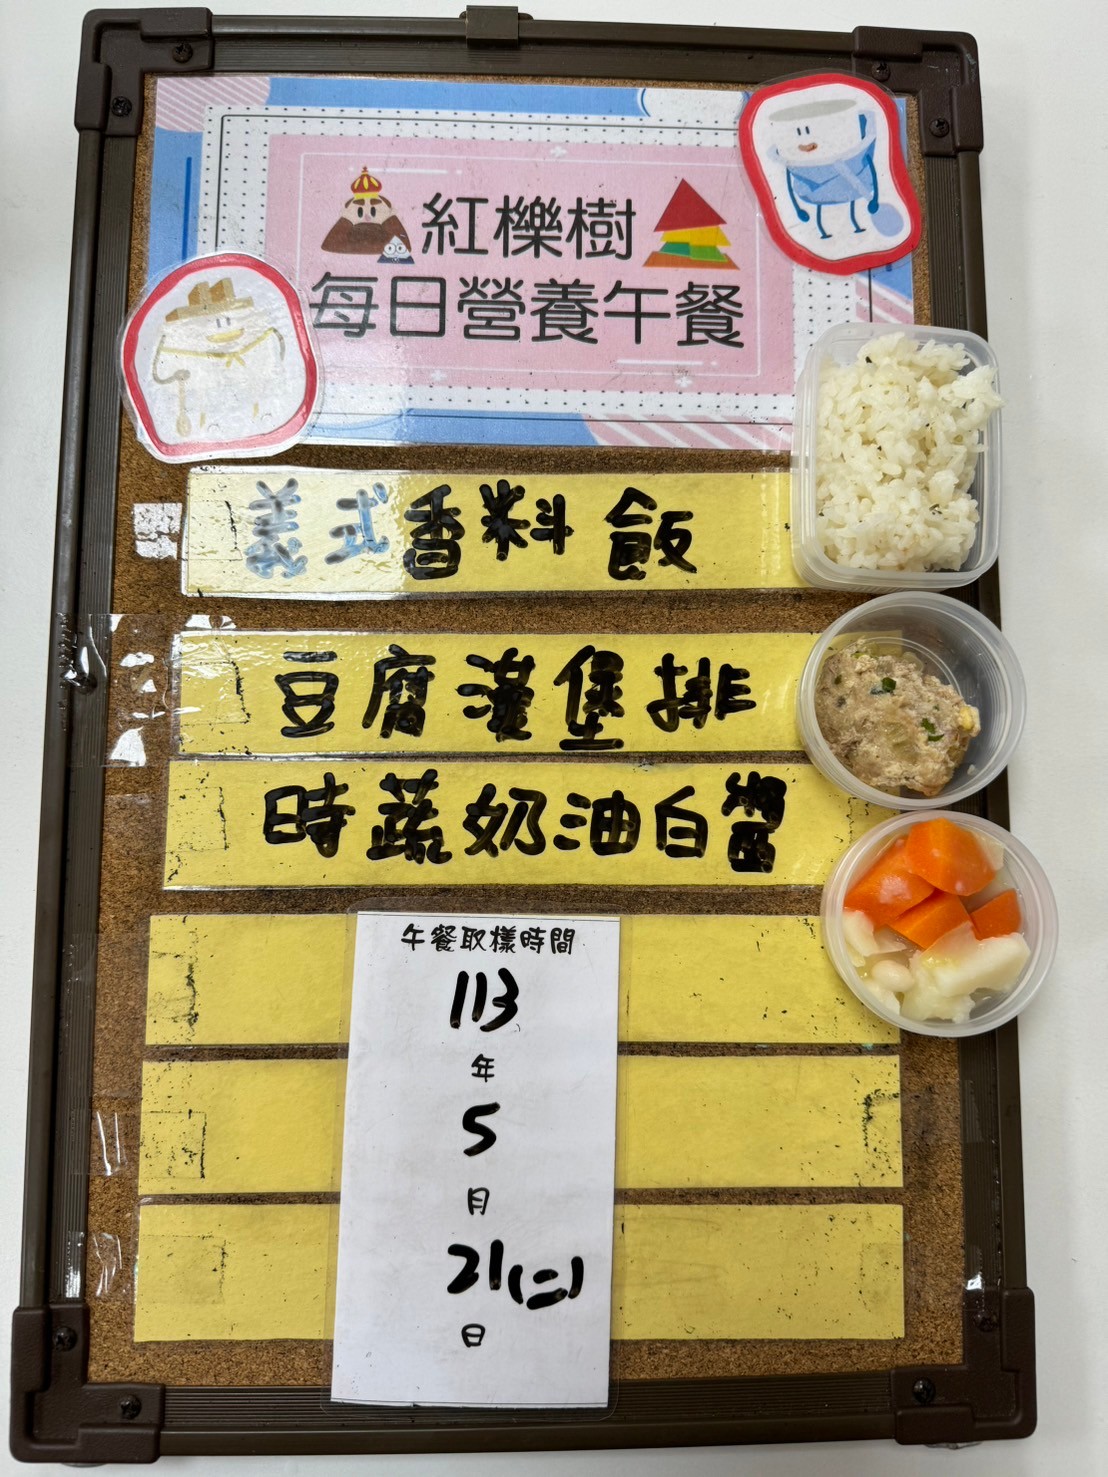 紅櫟樹
每日營養午餐
義式香料飯
豆腐漢堡排
時蔬奶油白醬
午餐取樣時間
113
年
5
月
21(二)
日